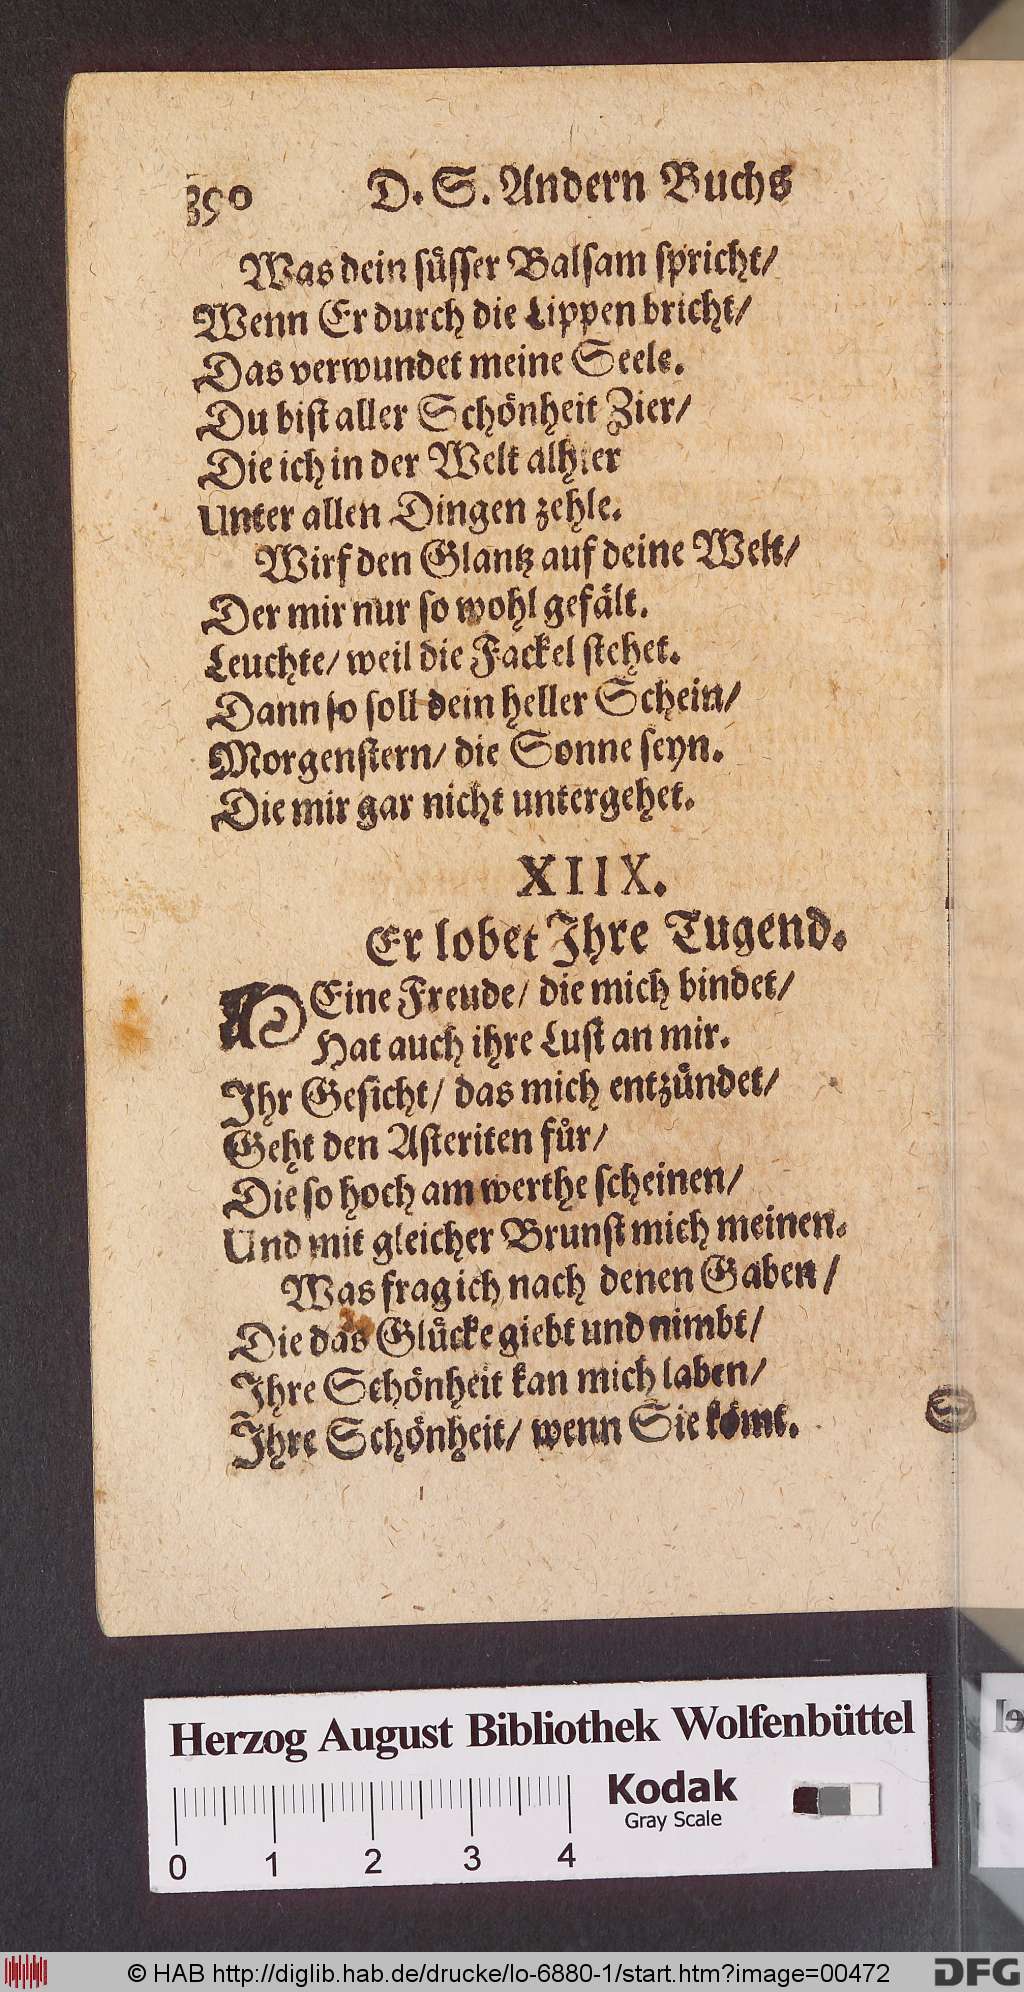 390 D. S. Andern Buchs
Was dein süsser Balsam spricht/
Wenn Er durch die Lippen bricht/
Das verwundet meine Seele.
Du bist aller Schönheit Zier/
Die ich in der Welt alhier
Unter allen Dingen zehle.
Wirf den Glantz auf deine Welt/
Der mir nur so wohl gefält.
Leuchte/ weil die Fackel stehet.
Dann so soll dein heller Schein/
Morgenstern/ die Sonne seyn.
Die mir gar nicht untergehet.
XIIX.
Er lobet Ihre Tugend.
MEine Freude/ die mich bindet/
Hat auch ihre Lust an mir.
Ihr Gesicht/ das mich entzündet/
Geht den Asteriten für/
Die so hoch am werthe scheinen/
Und mit gleicher Brunst mich meinen.
Was frag ich nach denen Gaben/
Die das Glücke giebt und nimbt/
Ihre Schönheit kan mich laben/
Ihre Schönheit/ wenn Sie kömt.
Herzog August Bibliothek Wolfenbüttel
Kodak
Gray Scale
0 1 2 3 4
© HAB http://diglib.hab.de/drucke/lo-6880-1/start.htm?image=00472
DFG